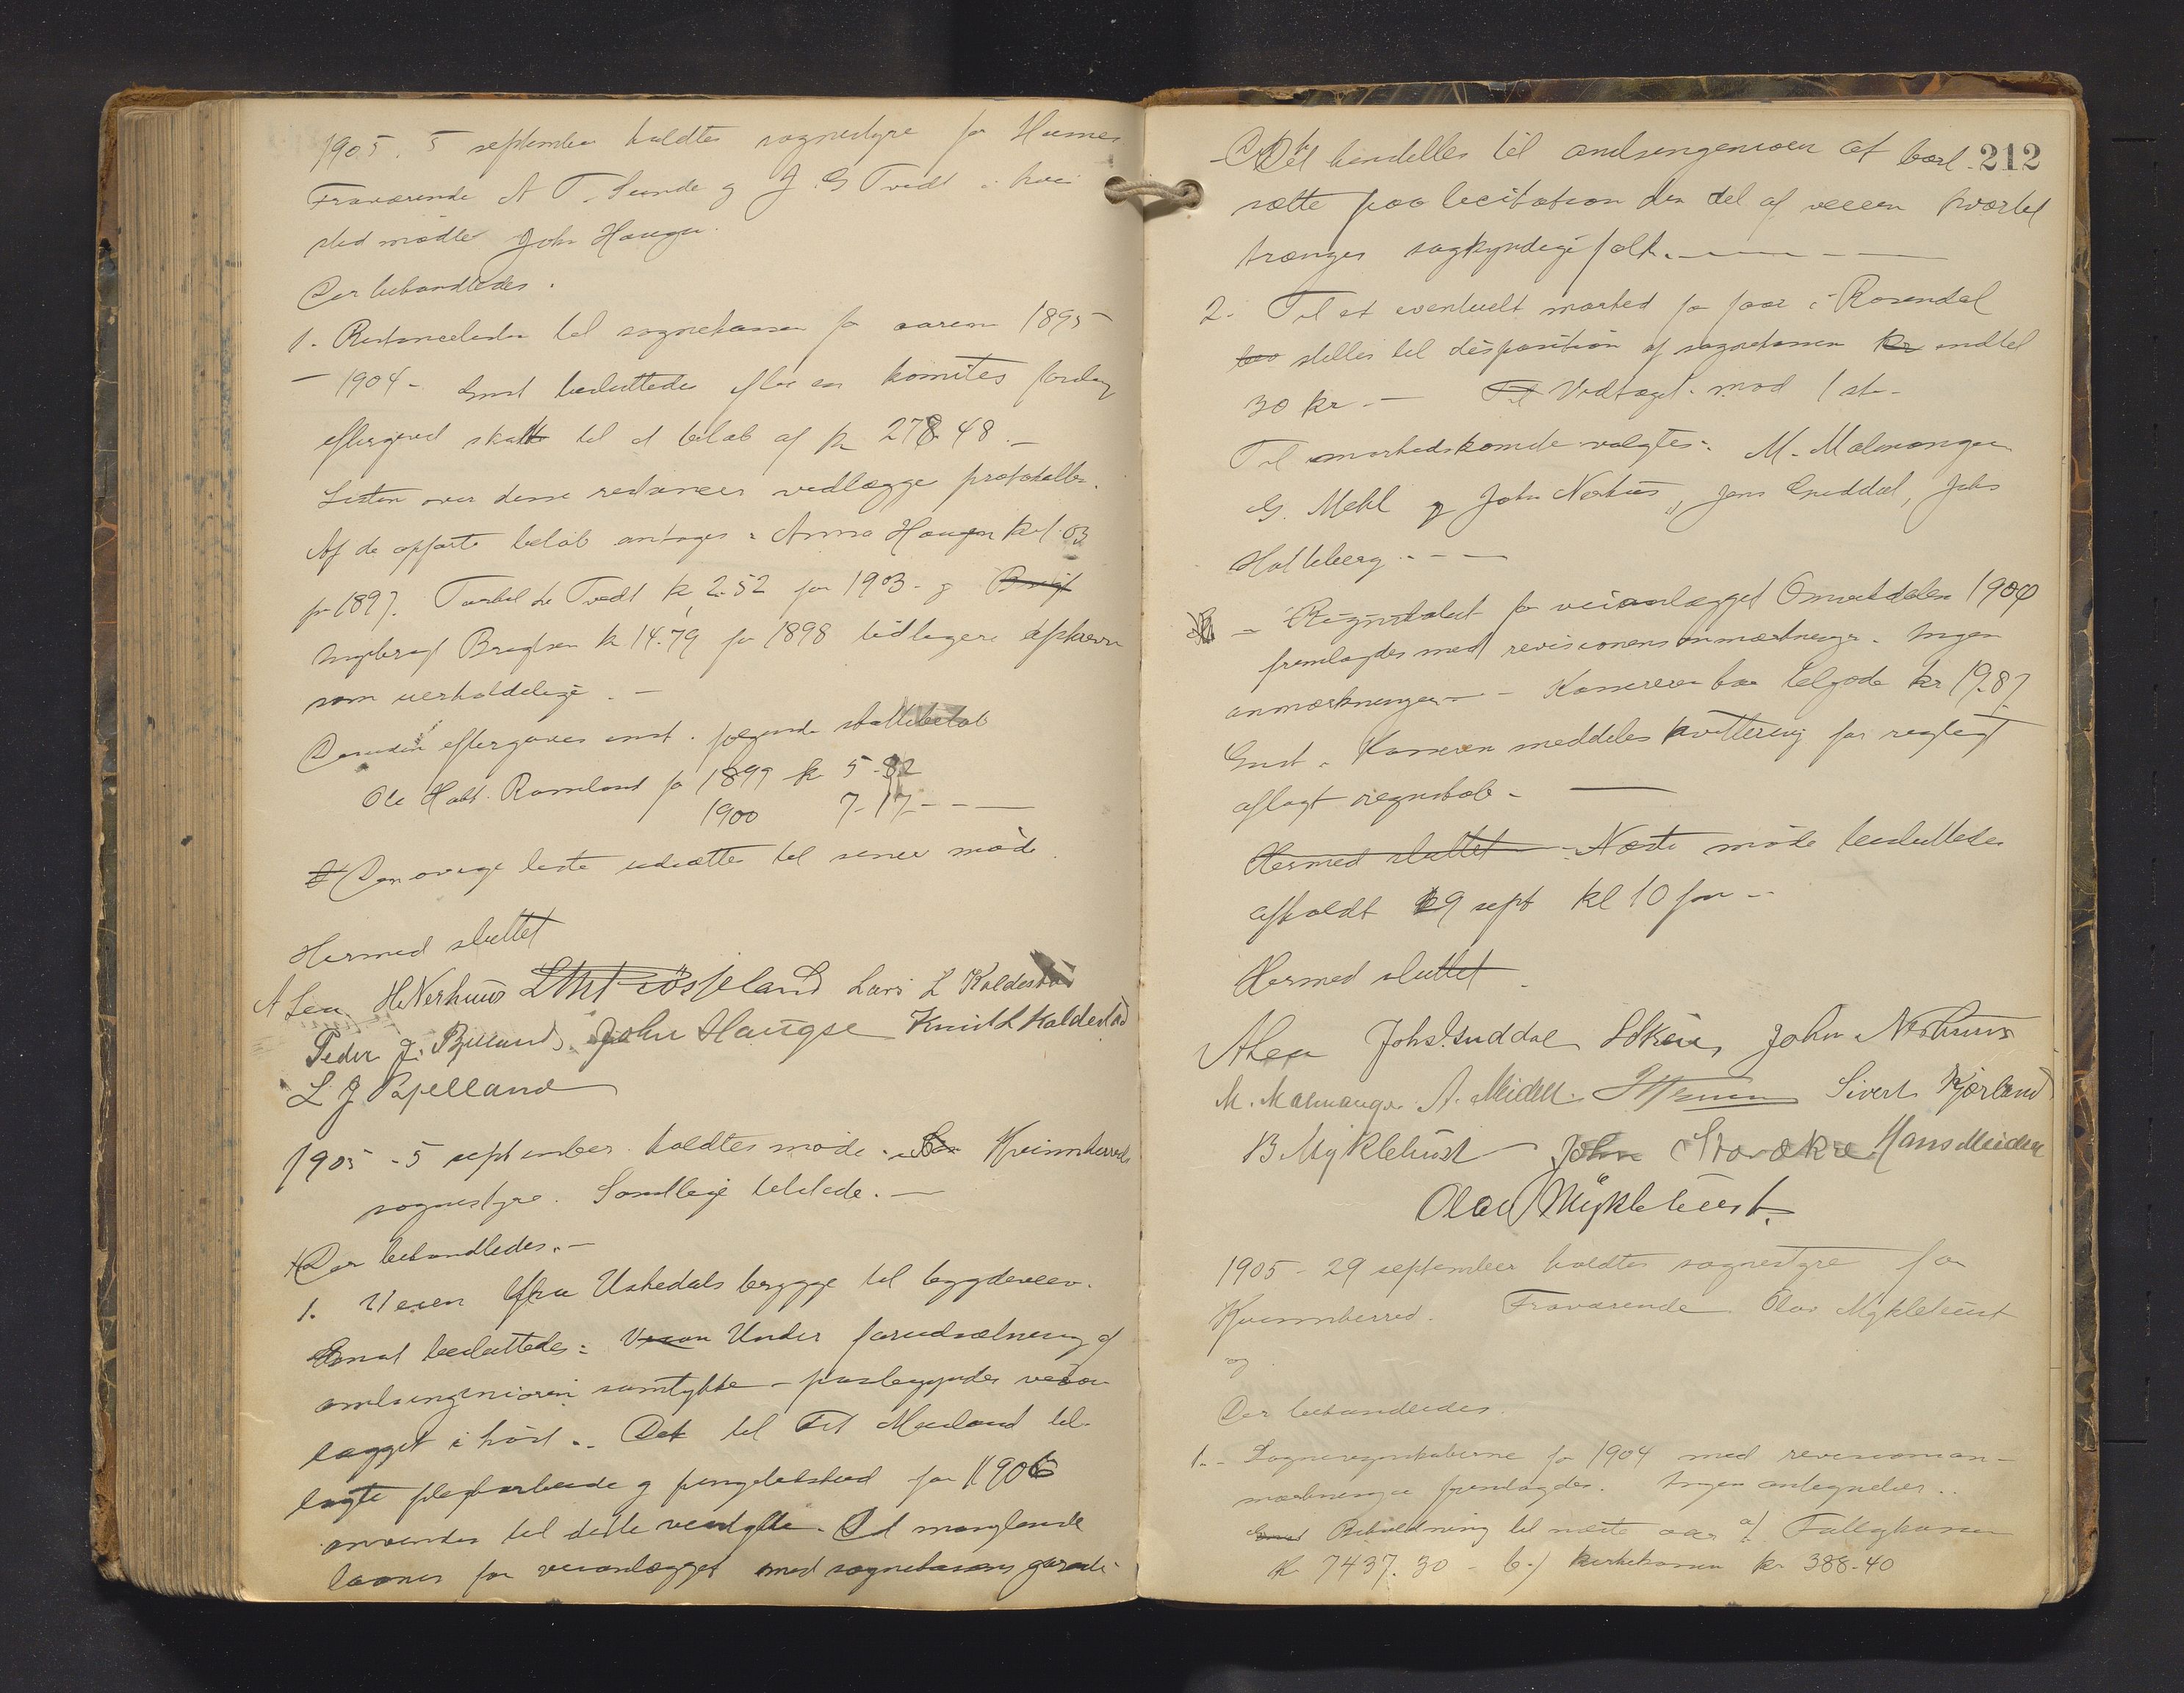 1905. 5 september holdtes sognestyre for Husnes
Fraværende A T. Sunde og J. G Tvedt i hvis
sted mødte John Haugen.
Der behandledes.
1. Restanceliste til sognekassen for aarene 1895
— 1904 – Enst besluttedes efter en komites forslag
eftergivet skatt til et beløb af kr 278.48.—
Listen over disse restancer vedlægges protokollen.
Af de opførte beløb antages: Anna Haugen kr 1.03
for 1897. Torkel Tvedt kr 2.52 for 1903 – og Brigt
Brigtsen kr 14.79 for 1898 tidligere
som uerholdelige. —
Desuden eftergaves enst. følgende skattebeløb
Ole Halv. Ramland for 1899 kr 5-82
1900 7-17 - - —
Den øvrige liste udsættes til senere møde.
Hermed sluttet
A Lea H. Nerhuus Røsseland Lars L Kaldestad
Peder J. John Haugse Knut L Kaldestad
L J Opelland
1905 - 5 september holdtes møde Kvinnherreds
sognestyre. Samtlige tilstede. —
Der behandledes. —
1. Veien fra Uskedals brygge til bygdeveien.
Enst besluttedes: Veien Under forudsætning af
amtsingeniørens samtykke – paabegyndes veian
lægget i høst. Det til Fet Mauland til-
lagte pligtarbeide og pengetilskud for 1906
anvendes til dette veistykke. Det manglende
laanes for veianlægget med sognekassens garanti
212
Det henstilles til amtsingeniøren at bort-
sætte paa licitation den del af veien hvortil
trænges sagkyndige folk. — — —
2. Til et eventuelt marked for faar i Rosendal
stilles til disposition af sognekassen kr indtil
30 kr. — Vedtaget mod 1 st.
Til markedskomite valgtes: M. Malmanger
G. Mehl og John Nerhus, Jens Guddal, Johs
Hatteberg - - —
— Regnskabet for veianlægget Omvikdalen 1904
fremlagdes med revisionens anmærkninger. Ingen
anmærkninger — Kasserer har tilgode kr 19.87
Enst. Kasseren meddeles kvittering for rigtigt
aflagt regnskab — —
Hermed sluttet Næste møde besluttedes
afholdt 29 sept kl 10 fm —
Hermed sluttet.
A Lea Johs. Guddal John Nerhuus
M. Malmanger A. Meidell. Sivert Kjærland
B Myklebust John Hans Meidell
Olav Myklebust.
1905 - 29 september holdtes sognestyre for
Kvinnherred. Fraværende Olav Myklebust
og
Der behandledes.
1. - Sogneregnskaberne for 1904 med revisionsan-
mærkninger fremlagdes. Ingen antegnelser..
Enst Beholdning til næste aar a/. Fattigkassen
kr 7437.30 - b./ kirkekassen kr 388.40